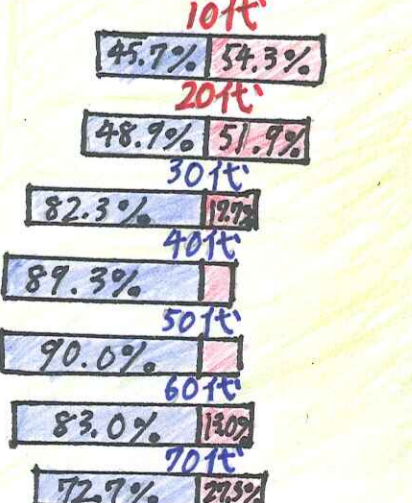 10代
45.7% 54.3%
20代
48.9% 51.9%
30代
82.3% 17.7%
40代
89.3%
50代
90.0%
60代
83.0% 13.0%
70代
72.7% 27.3%